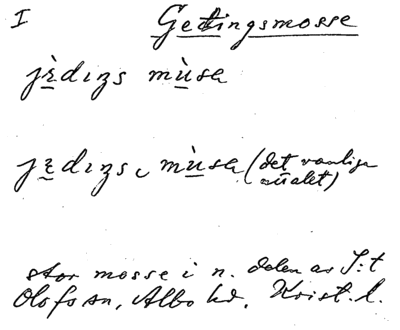 I Getingsmosse
jæ̀dıŋs mùsa
jæ̀dıŋs mùsa (det vanliga
uttalet)
stor mosse i n. delen av S:t
Olofs sn, Albo hd, Krist. l.